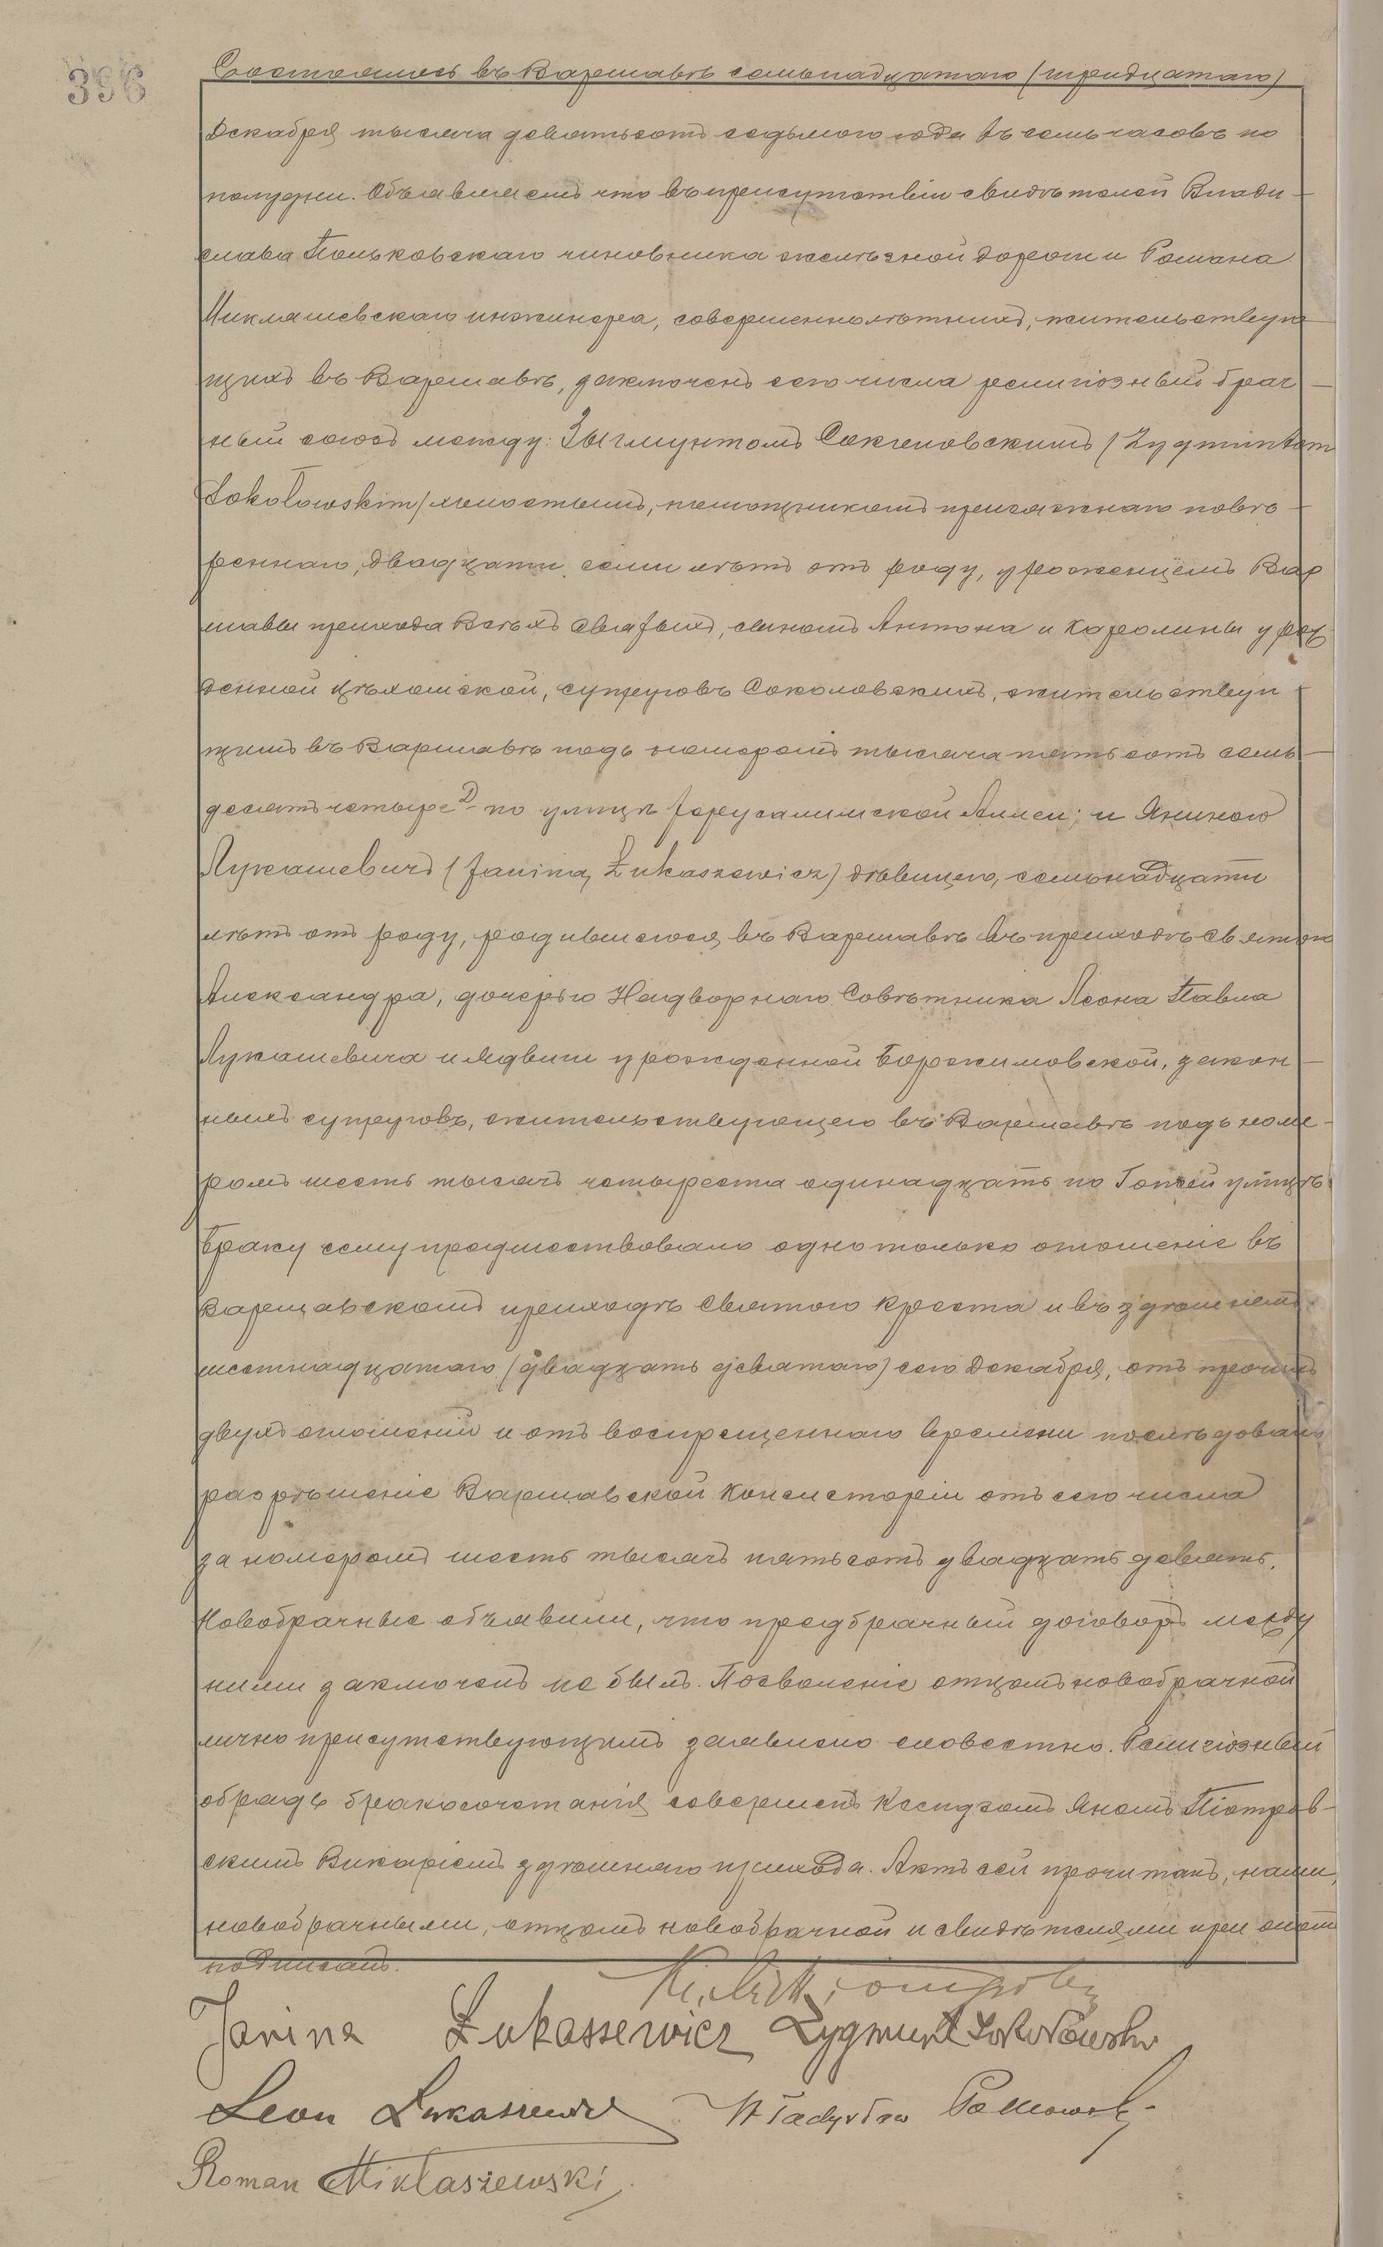 396
Состоялось въ Варшавѣ семьнадцатаго (тридцатаго)
Декабря тысяча девятьсотъ седьмого года въ семь часовъ по
полудни. Объявляемъ что въ присутствіи свидѣтелей Влади-
слава Польковскаго чиновника желѣзной дороги и Романа
Микляшевскаго инженера, совершеннолѣтнихъ, жительствую
щихъ въ Варшавѣ, заключенъ сего числа религіозный брач-
ный союзъ между: Зыгмунтомъ Соколовскимъ (Zygmuntem
Sokołowskim) холостымъ, помощникомъ присяжнаго повѣ-
реннаго, двадцати семи лѣтъ отъ роду, уроженцемъ Вар
шавы прихода Всѣхъ Святыхъ, сыномъ Антона и Каролины урож-
денной Цѣхомской, супруговъ Соколовскихъ, жительствую-
щимъ въ Варшавѣ подъ номеромъ тысяча пятьсотъ семь-
десятъ четыре D по улицѣ Іерусалимской Аллеи; и Яниною
Лукашевичъ (Janiną Łukaszewicz) дѣвицею, семьнадцати
лѣтъ отъ роду, родившеюся въ Варшавѣ въ приходѣ Святого
Александра, дочерью Надворнаго Совѣтника Леона Павла
Лукашевича и Ядвиги урожденной Боржимовской, закон-
ныхъ супруговъ, жительствующею въ Варшавѣ подъ номе-
ромъ шесть тысячъ четыреста одинадцать по Гожей улицѣ.
Браку сему предшествовало одно только оглошеніе въ
Варшавскомъ приходѣ Святого Креста и въ здѣшнемъ
шестнадцатаго (двадцать девятаго) сего Декабря, отъ прочихъ
двухъ оглошеній и отъ воспрещеннаго времени послѣдовало
разрѣшеніе Варшавской Консисторіи отъ сего числа
за номеромъ шесть тысячъ пятьсотъ двадцать девять.
Новобрачные объявили, что предбрачный договоръ между
ними заключенъ не былъ. Позволеніе отцомъ новобрачной
лично присутствующимъ заявлено словестно. Религіозный
обрядъ бракосочетанія совершенъ Ксендзомъ Яномъ Піотров-
скимъ Викаріемъ здѣшняго прихода. Актъ сей прочитанъ, нами,
новобрачными, отцомъ новобрачной и свидѣтелями при ономъ
подписанъ.
Janina Łukaszewicz Zygmunt Sokołowski
Leon Łukaszewicz Władysław
Roman Miklaszewski